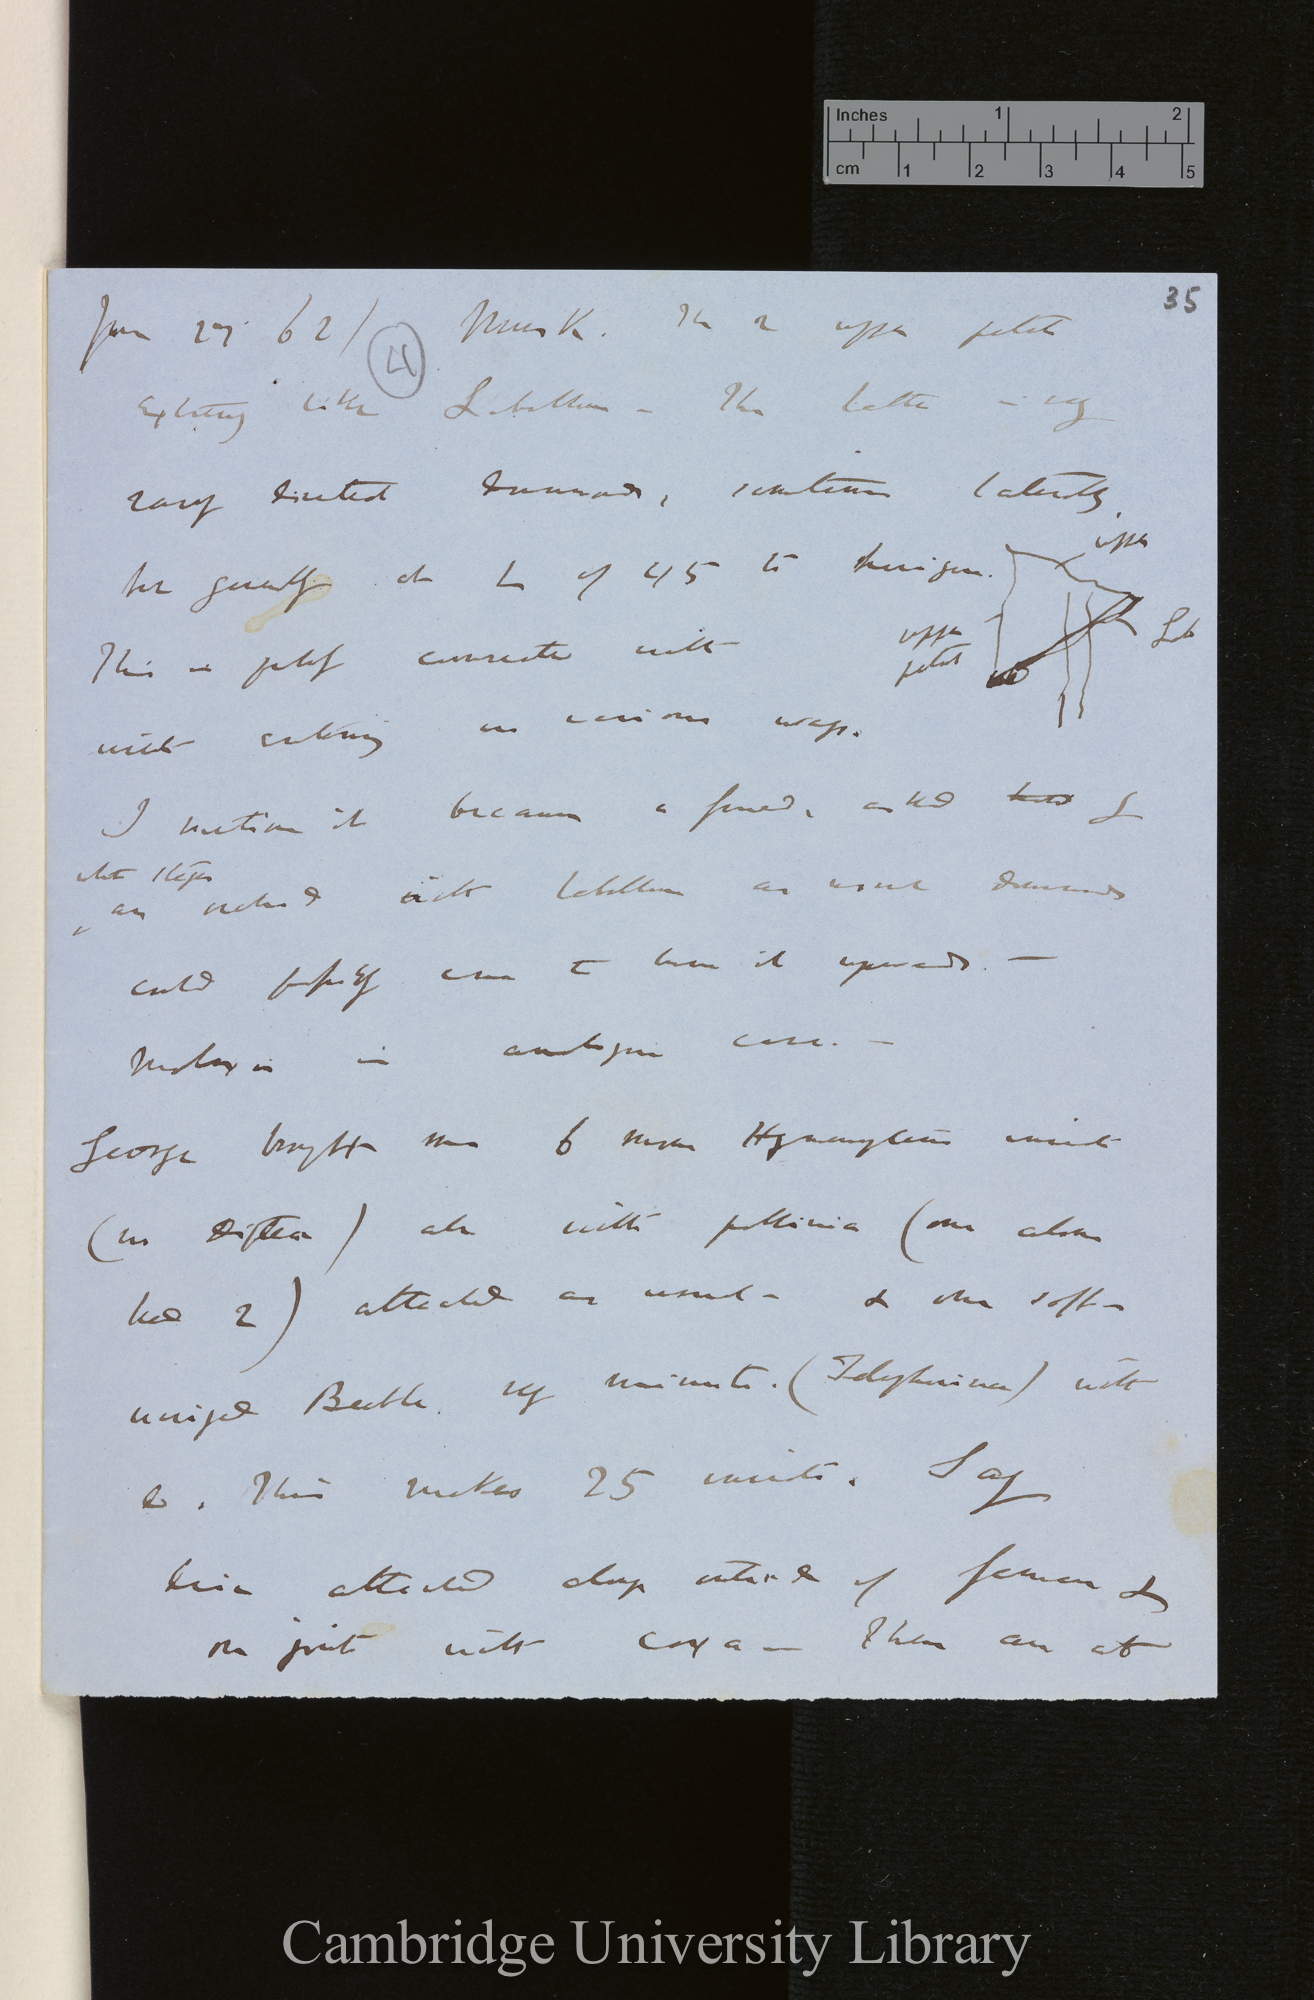 Inches 1 2
cm 1 2 3 4 5
35
June 27 62/ Musk. The 2 upper petals
4
exactly like Labellum – The latter is very
rarely directed downwards, sometimes laterally
but generally at L of 45 to horizon.
upper
upper petal
Lab
This is probably connected with
insects entering in various ways.
I mention it because a friend, asked
what steps
an orchid with labellum as usual downwards
could possibly come to turn it upwards. –
Malaxis is analogous case. –
George brought me 6 more Hymenopterous insects
(no Diptera) all with pollinia (one alone
had 2) attached as usual – & one soft-
winged Beetle, very minute. (Telephorinae) with
do. This makes 25 insects. I say
attached always outside of femur &
on joint with coxa – There are at
Cambridge University Library